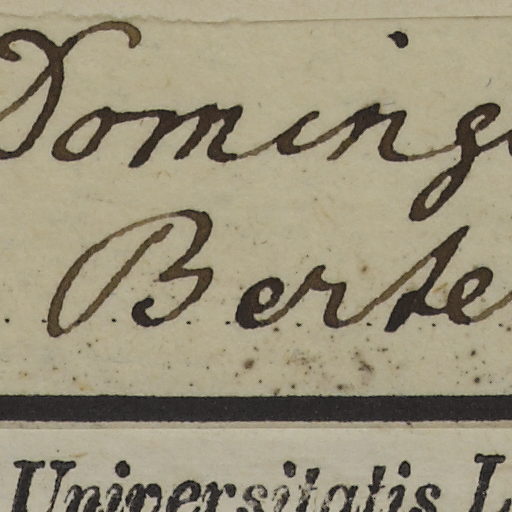 Doming
Berte
Universitatis L